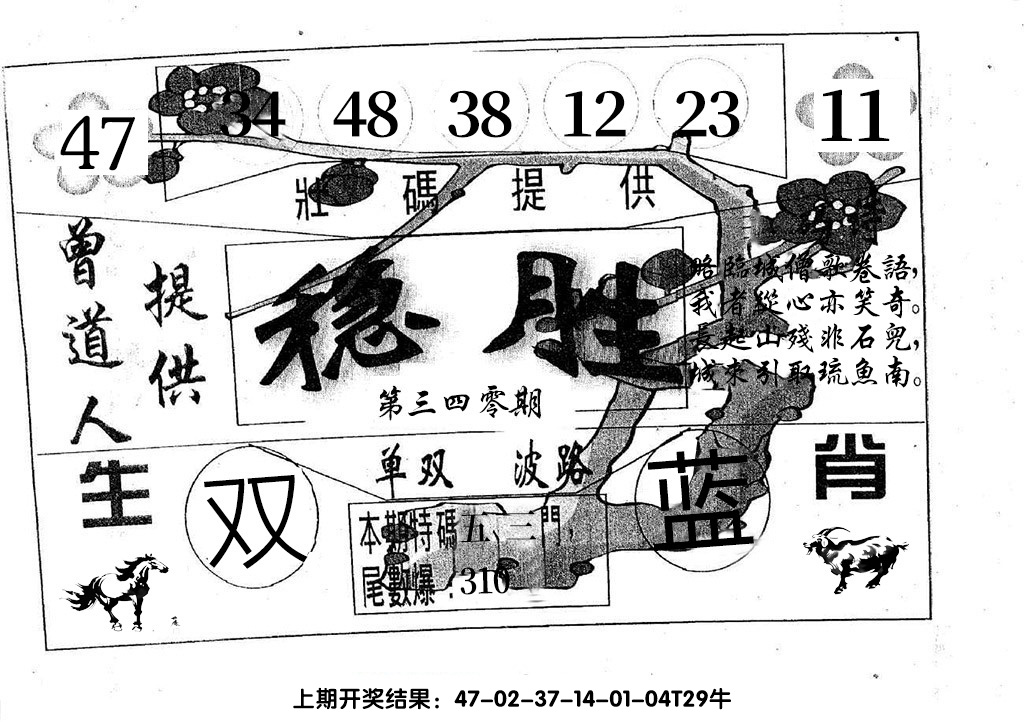 47 34 48 38 12 23 11
壯碼提供
曾道人
提供
稳胜
第三四零期
略臨城僧歌卷語，
我者從心亦笑奇。
長起山殘非石兕，
城來引取琉魚南。
单双 波路
生
双
蓝
肖
本期特碼五、三門，
尾數爆：310
上期开奖结果：47-02-37-14-01-04T29牛